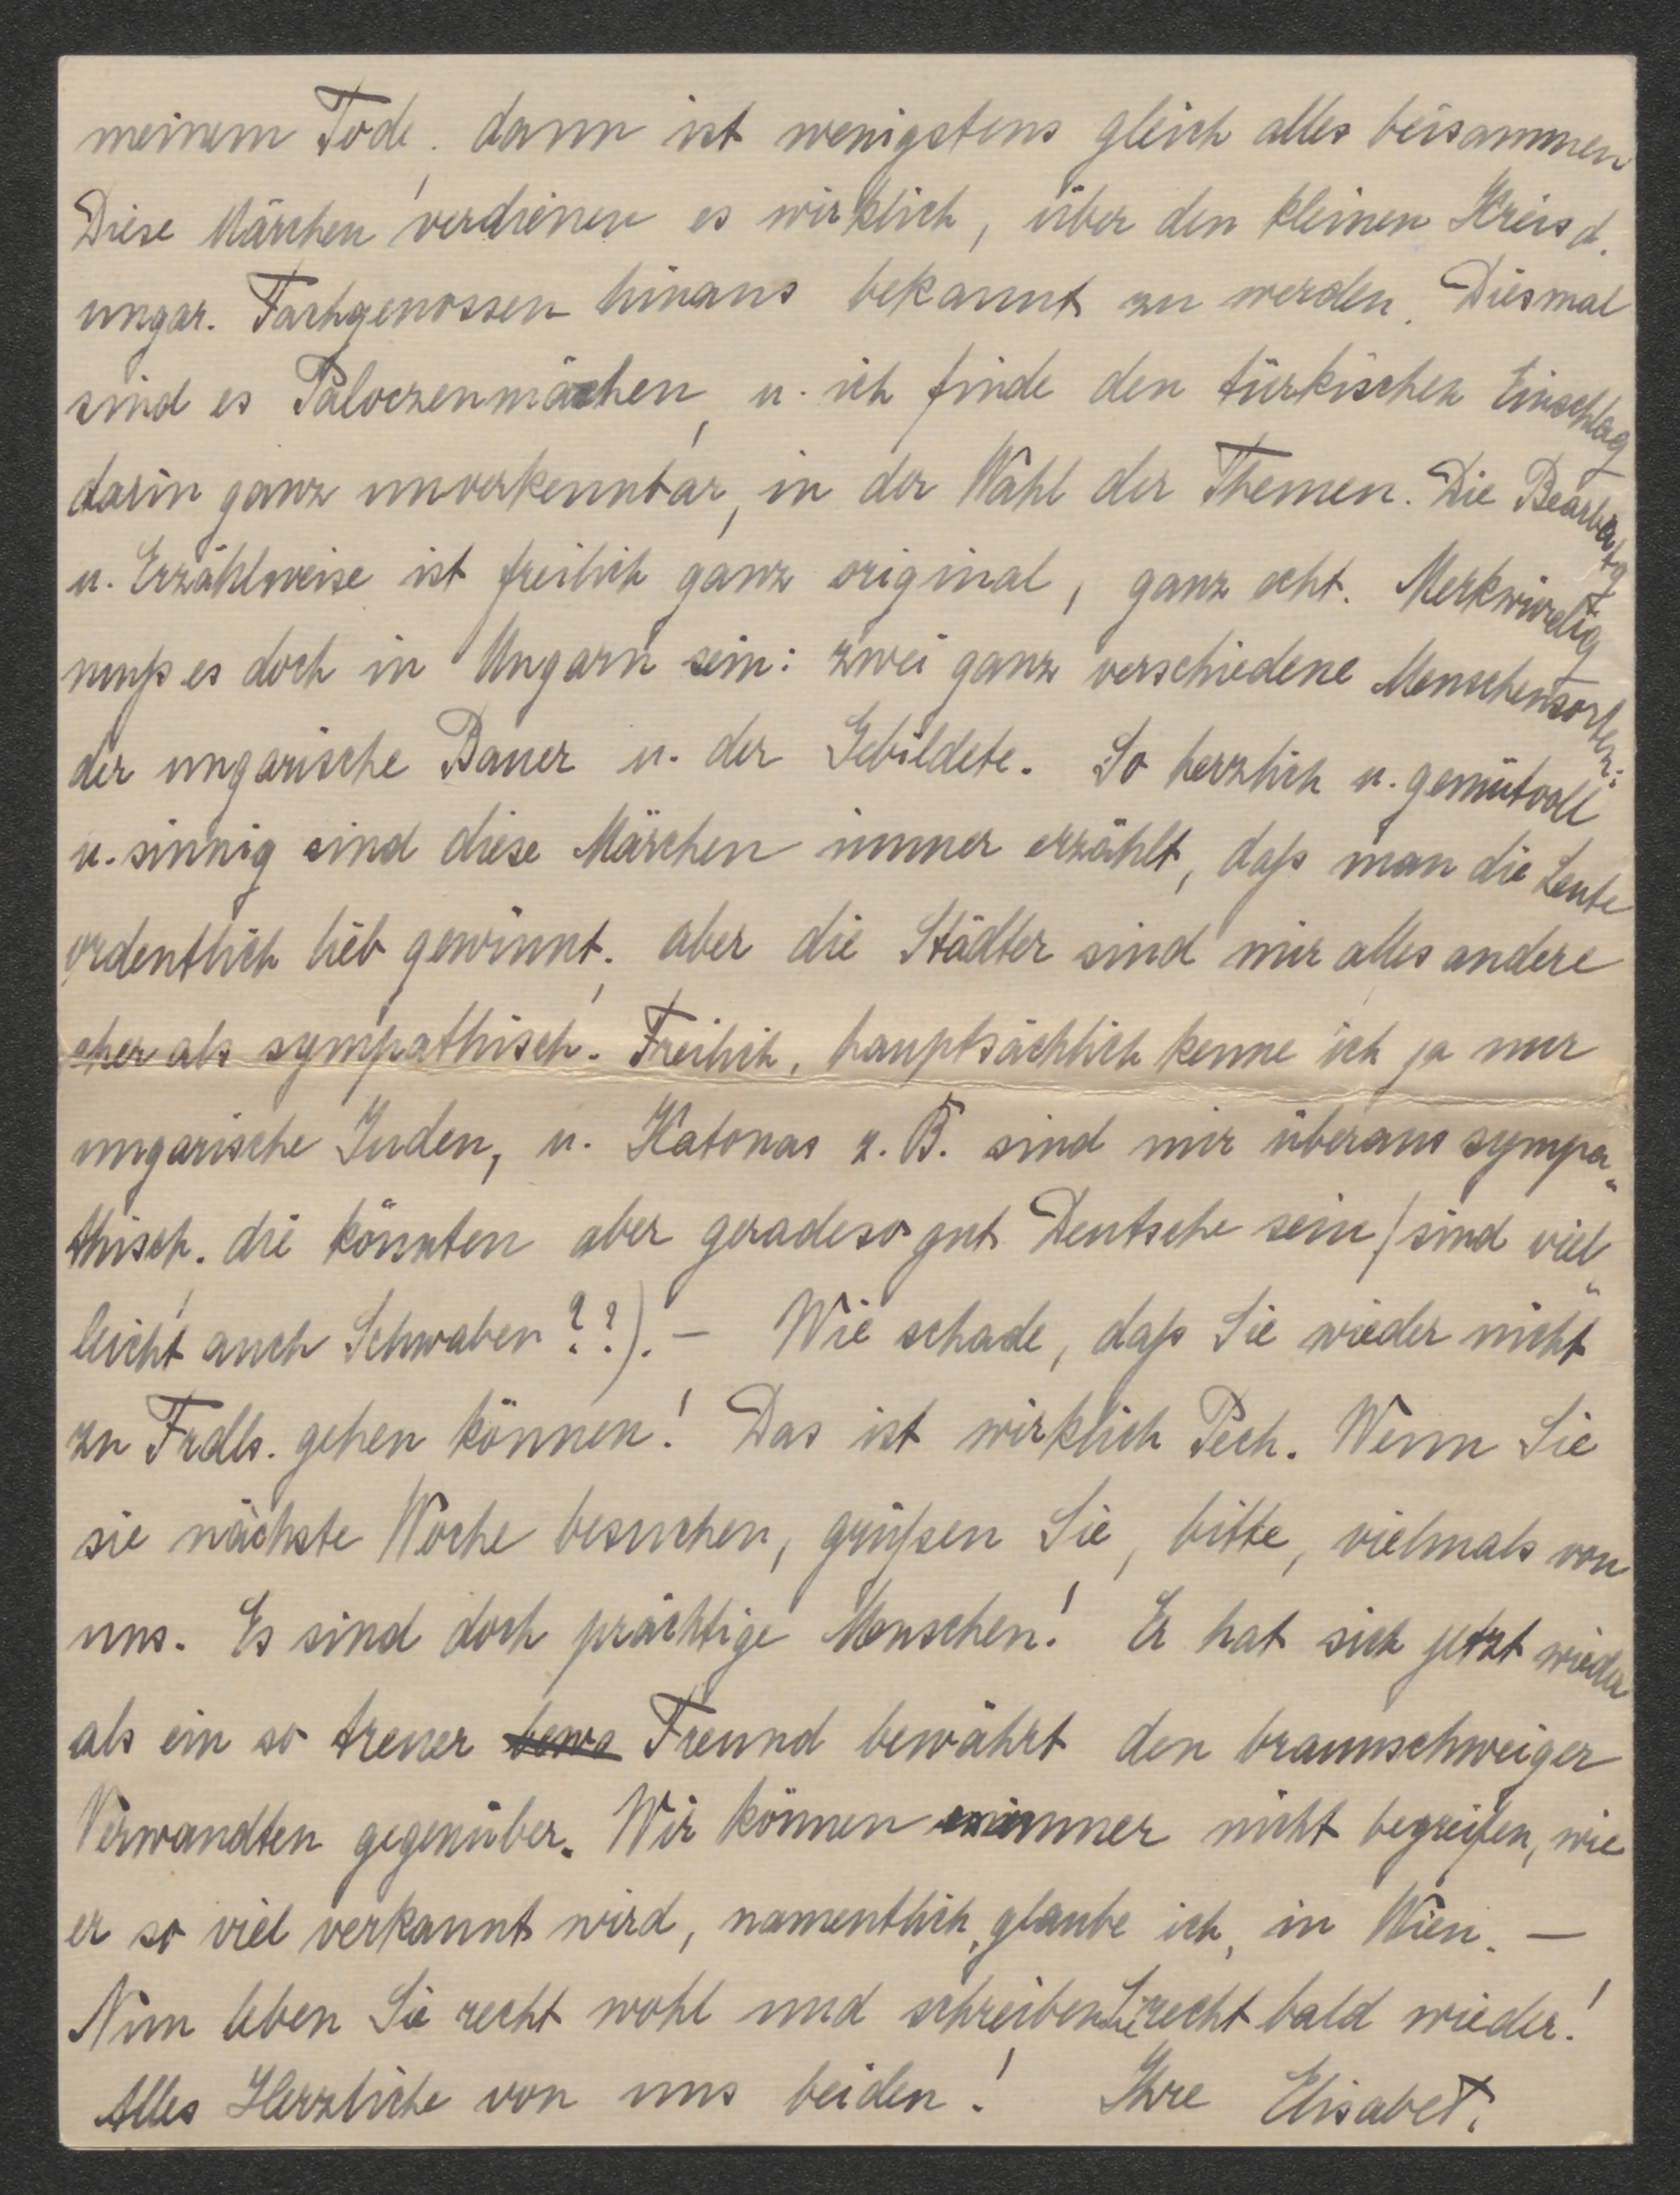 meinem Tode; dann ist wenigstens gleich alles beisammen
Diese Märchen verdienen es wirklich, über den kleinen Kreis d.
ungar. Fachgenossen hinaus bekannt zu werden. Diesmal
sind es Paloczenmärchen, u. ich finde den türkischen Einschlag
darin ganz unverkennbar, in der Wahl der Themen. Die Bearbeitg
u. Erzählweise ist freilich ganz original, ganz echt. Merkwürdig
muß es doch in Ungarn sein: zwei ganz verschiedene Menschensorten:
der ungarische Bauer u. der Gebildete. So herzlich u. gemütvoll
u. sinnig sind diese Märchen immer erzählt, daß man die Leute
ordentlich lieb gewinnt; aber die Städter sind mir alles andere
eher als sympathisch. Freilich, hauptsächlich kenne ich ja nur
ungarische Juden, u. Katonas z. B. sind mir überaus sympa„
thisch; die könnten aber geradeso gut Deutsche sein (sind viel„
leicht auch Schwaben??). – Wie schade, daß Sie wieder nicht
zu Frdls. gehen können! Das ist wirklich Pech. Wenn Sie
sie nächste Woche besuchen, grüßen Sie, bitte, vielmals von
uns. Es sind doch prächtige Menschen! Er hat sich jetzt wieder
als ein so treuer bewa Freund bewährt den braunschweiger
Verwandten gegenüber. Wir können immer nicht begreifen, wie
er so viel verkannt wird, namentlich, glaube ich, in Wien. –
Nun leben Sie recht wohl und schreiben Sie recht bald wieder!
Alles Herzliche von uns beiden! Ihre Elisabet.